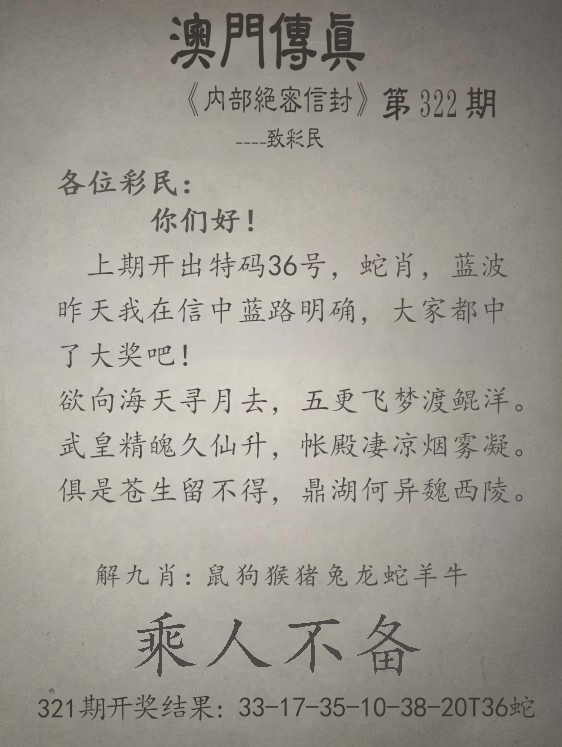 澳門傳眞
《内部絕密信封》第322期
----致彩民
各位彩民：
你们好！
上期开出特码36号，蛇肖，蓝波
昨天我在信中蓝路明确，大家都中
了大奖吧！
欲向海天寻月去，五更飞梦渡鲲洋。
武皇精魄久仙升，帐殿凄凉烟雾凝。
俱是苍生留不得，鼎湖何异魏西陵。
解九肖：鼠狗猴猪兔龙蛇羊牛
乘人不备
321期开奖结果：33-17-35-10-38-20T36蛇